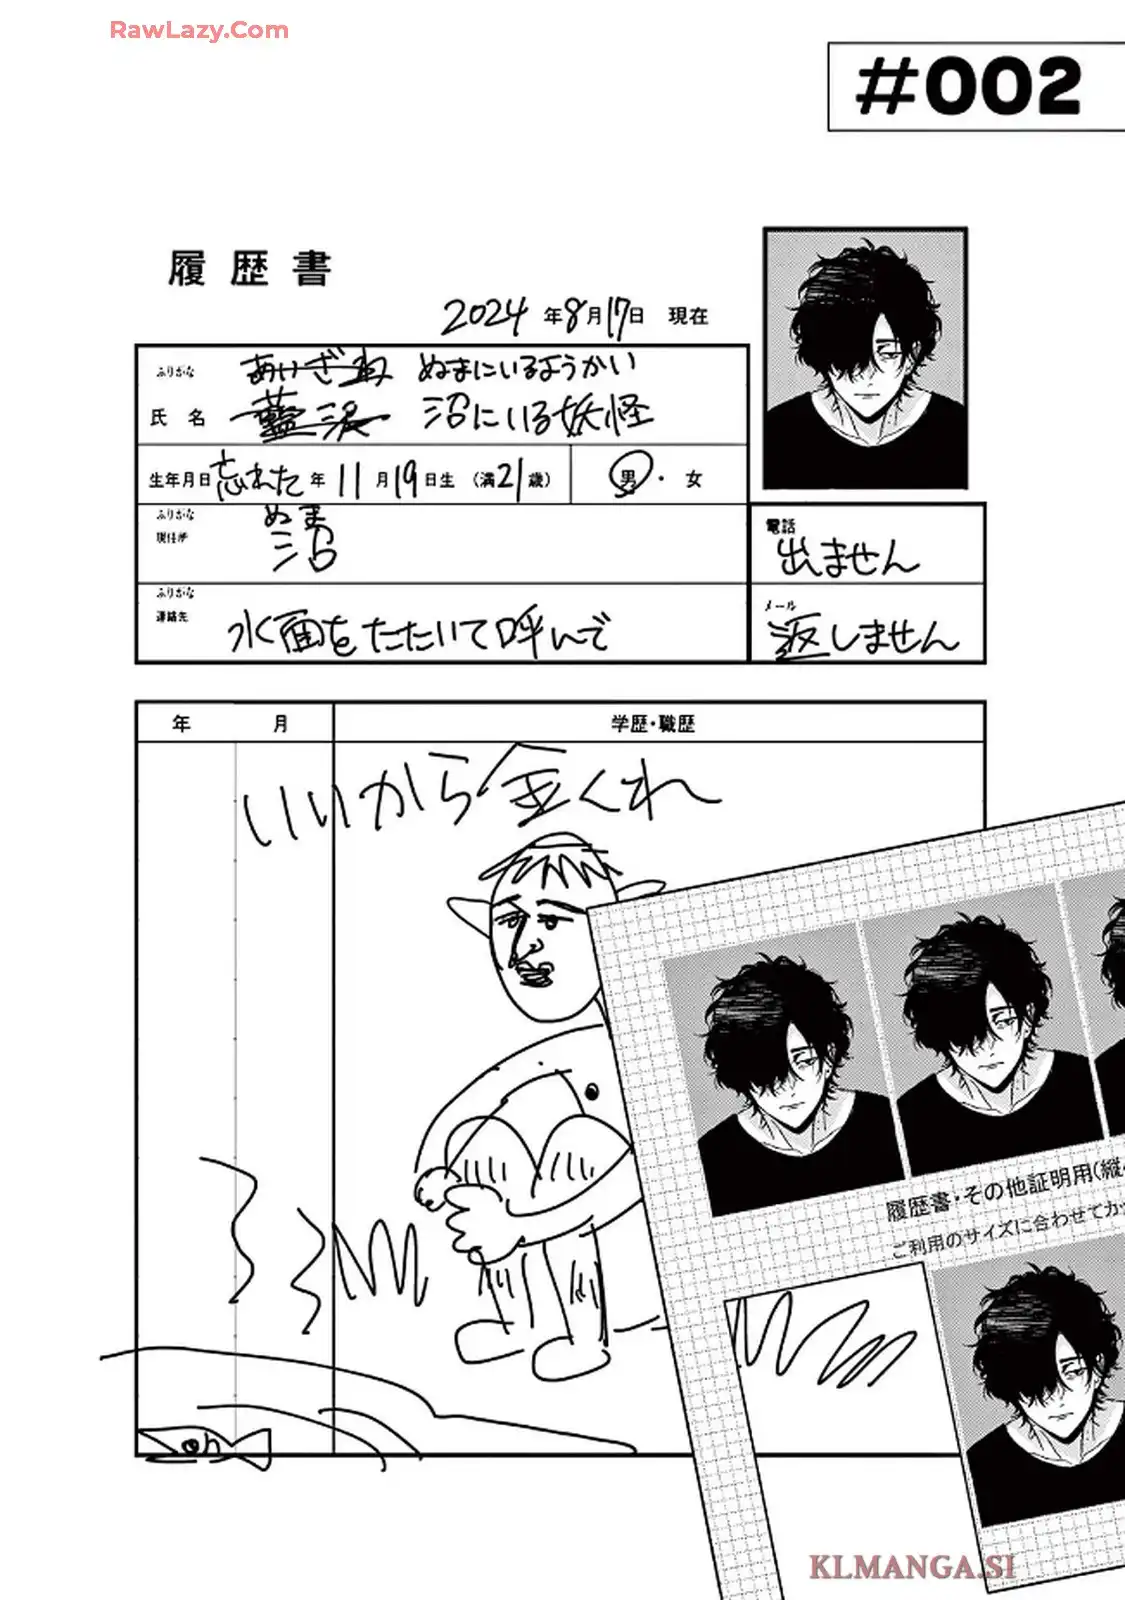 RawLazy.Com
#002
履歴書
2024年8月17日 現在
ふりがな あいざわ ぬまにいるようかい
氏名 藍沢 沼にいる妖怪
生年月日 忘れた年11月19日生 (満21歳) 男・女
ふりがな ぬま
現住所 沼
電話
出ません
ふりがな
連絡先 水面をたたいて呼んで
メール
返しません
年 月 学歴・職歴
いいから金くれ
履歴書・その他証明用(縦
ご利用のサイズに合わせてカッ
KLMANGA.SI